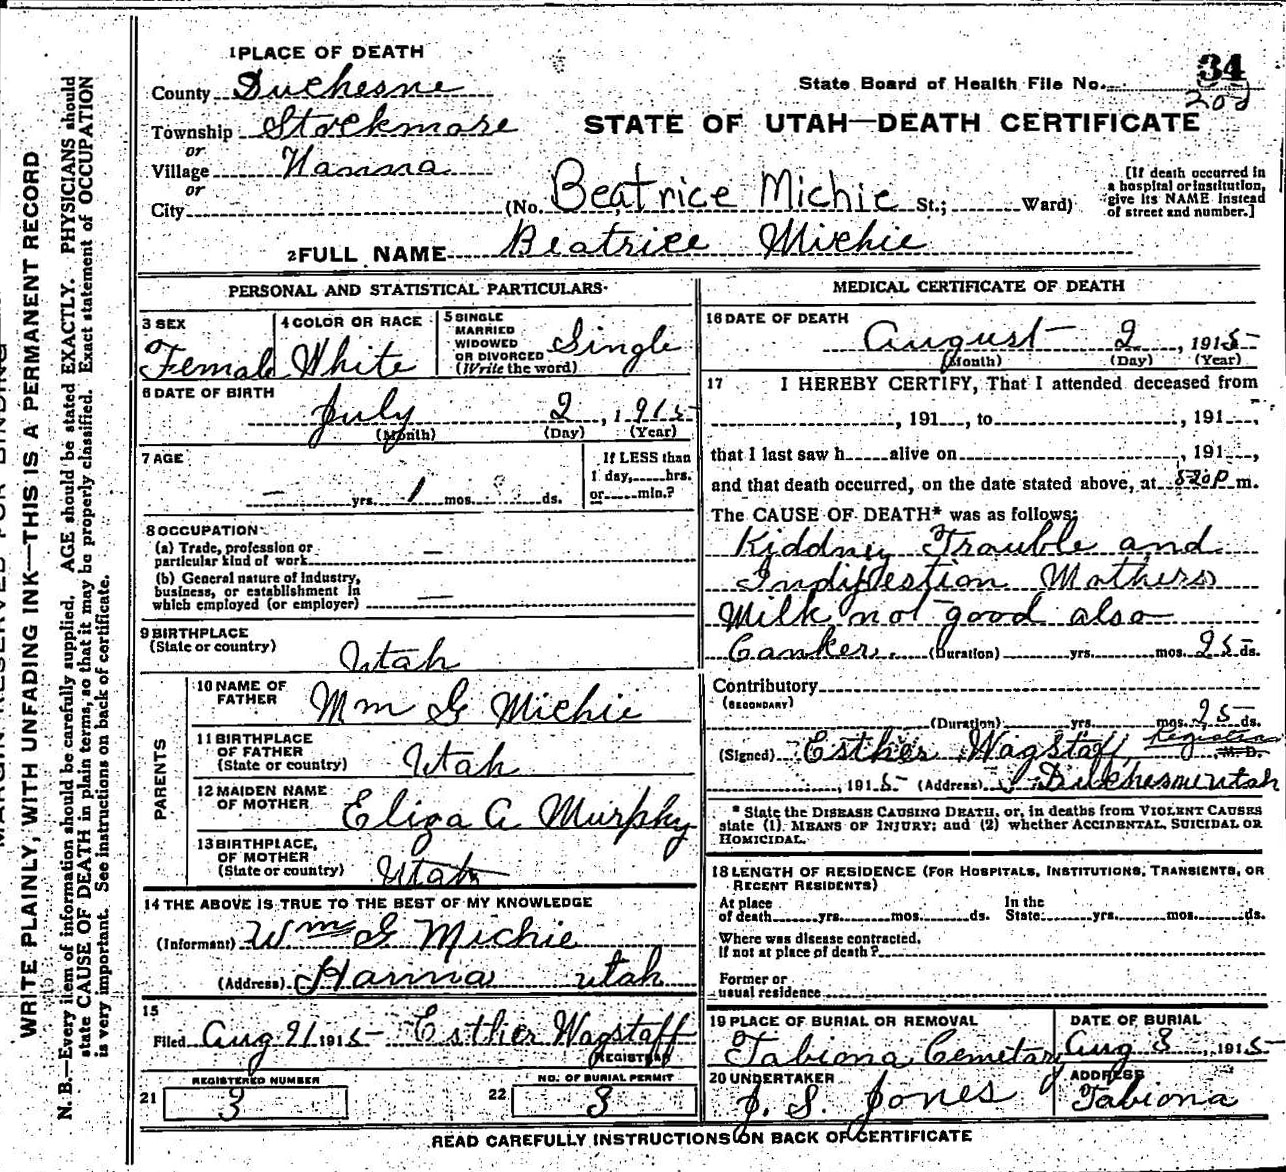 1 PLACE OF DEATH
County Duchesne
Township Stockmore
or
Village Hanna
or
City (No. Beatrice Michie St.; Ward)
State Board of Health File No. 34
202
STATE OF UTAH—DEATH CERTIFICATE
[If death occurred in
a hospital or institution,
give its NAME instead
of street and number.]
2 FULL NAME Beatrice Michie
PERSONAL AND STATISTICAL PARTICULARS
3 SEX
Female
4 COLOR OR RACE
White
5 SINGLE
MARRIED
WIDOWED
OR DIVORCED
(Write the word)
Single
6 DATE OF BIRTH
July 2, 1915
(Month) (Day) (Year)
7 AGE
— yrs. 1 mos. ds.
If LESS than
1 day, hrs.
or min.?
8 OCCUPATION
(a) Trade, profession or
particular kind of work —
(b) General nature of industry,
business, or establishment in
which employed (or employer) —
9 BIRTHPLACE
(State or country)
Utah
PARENTS
10 NAME OF
FATHER
Wm G Michie
11 BIRTHPLACE
OF FATHER
(State or country)
Utah
12 MAIDEN NAME
OF MOTHER
Eliza A Murphy
13 BIRTHPLACE,
OF MOTHER
(State or country)
Utah
14 THE ABOVE IS TRUE TO THE BEST OF MY KNOWLEDGE
(Informant) Wm G Michie
(Address) Hanna Utah
15
Filed Aug 21 1915 Esther Wagstaff
REGISTRAR
REGISTERED NUMBER
21 3
NO. OF BURIAL PERMIT
22 3
MEDICAL CERTIFICATE OF DEATH
16 DATE OF DEATH
August 2, 1915
(Month) (Day) (Year)
17 I HEREBY CERTIFY, That I attended deceased from
, 191 , to , 191 ,
that I last saw h alive on , 191 ,
and that death occurred, on the date stated above, at 520 P m.
The CAUSE OF DEATH* was as follows:
Kiddney Trouble and
Indifestion Mothers
Milk not good also
Canker. (Duration) yrs. mos. 25 ds.
Contributory
(SECONDARY)
(Duration) yrs. mos. 25 ds.
(Signed) Esther Wagstaff, Registrar M. D.
, 1915 (Address) Duchesne Utah
* State the DISEASE CAUSING DEATH, or, in deaths from VIOLENT CAUSES
state (1) MEANS OF INJURY; and (2) whether ACCIDENTAL, SUICIDAL OR
HOMICIDAL.
18 LENGTH OF RESIDENCE (FOR HOSPITALS, INSTITUTIONS, TRANSIENTS, OR
RECENT RESIDENTS)
At place
of death yrs. mos. ds.
In the
State yrs. mos. ds.
Where was disease contracted,
If not at place of death?
Former or
usual residence
19 PLACE OF BURIAL OR REMOVAL
Tabiona Cemetary
DATE OF BURIAL
Aug 3, 1915
20 UNDERTAKER
J. S. Jones
ADDRESS
Tabiona
READ CAREFULLY INSTRUCTIONS ON BACK OF CERTIFICATE
WRITE PLAINLY, WITH UNFADING INK—THIS IS A PERMANENT RECORD
N. B.—Every item of information should be carefully supplied. AGE should be stated EXACTLY. PHYSICIANS should
state CAUSE OF DEATH in plain terms, so that it may be properly classified. Exact statement of OCCUPATION
is very important. See instructions on back of certificate.